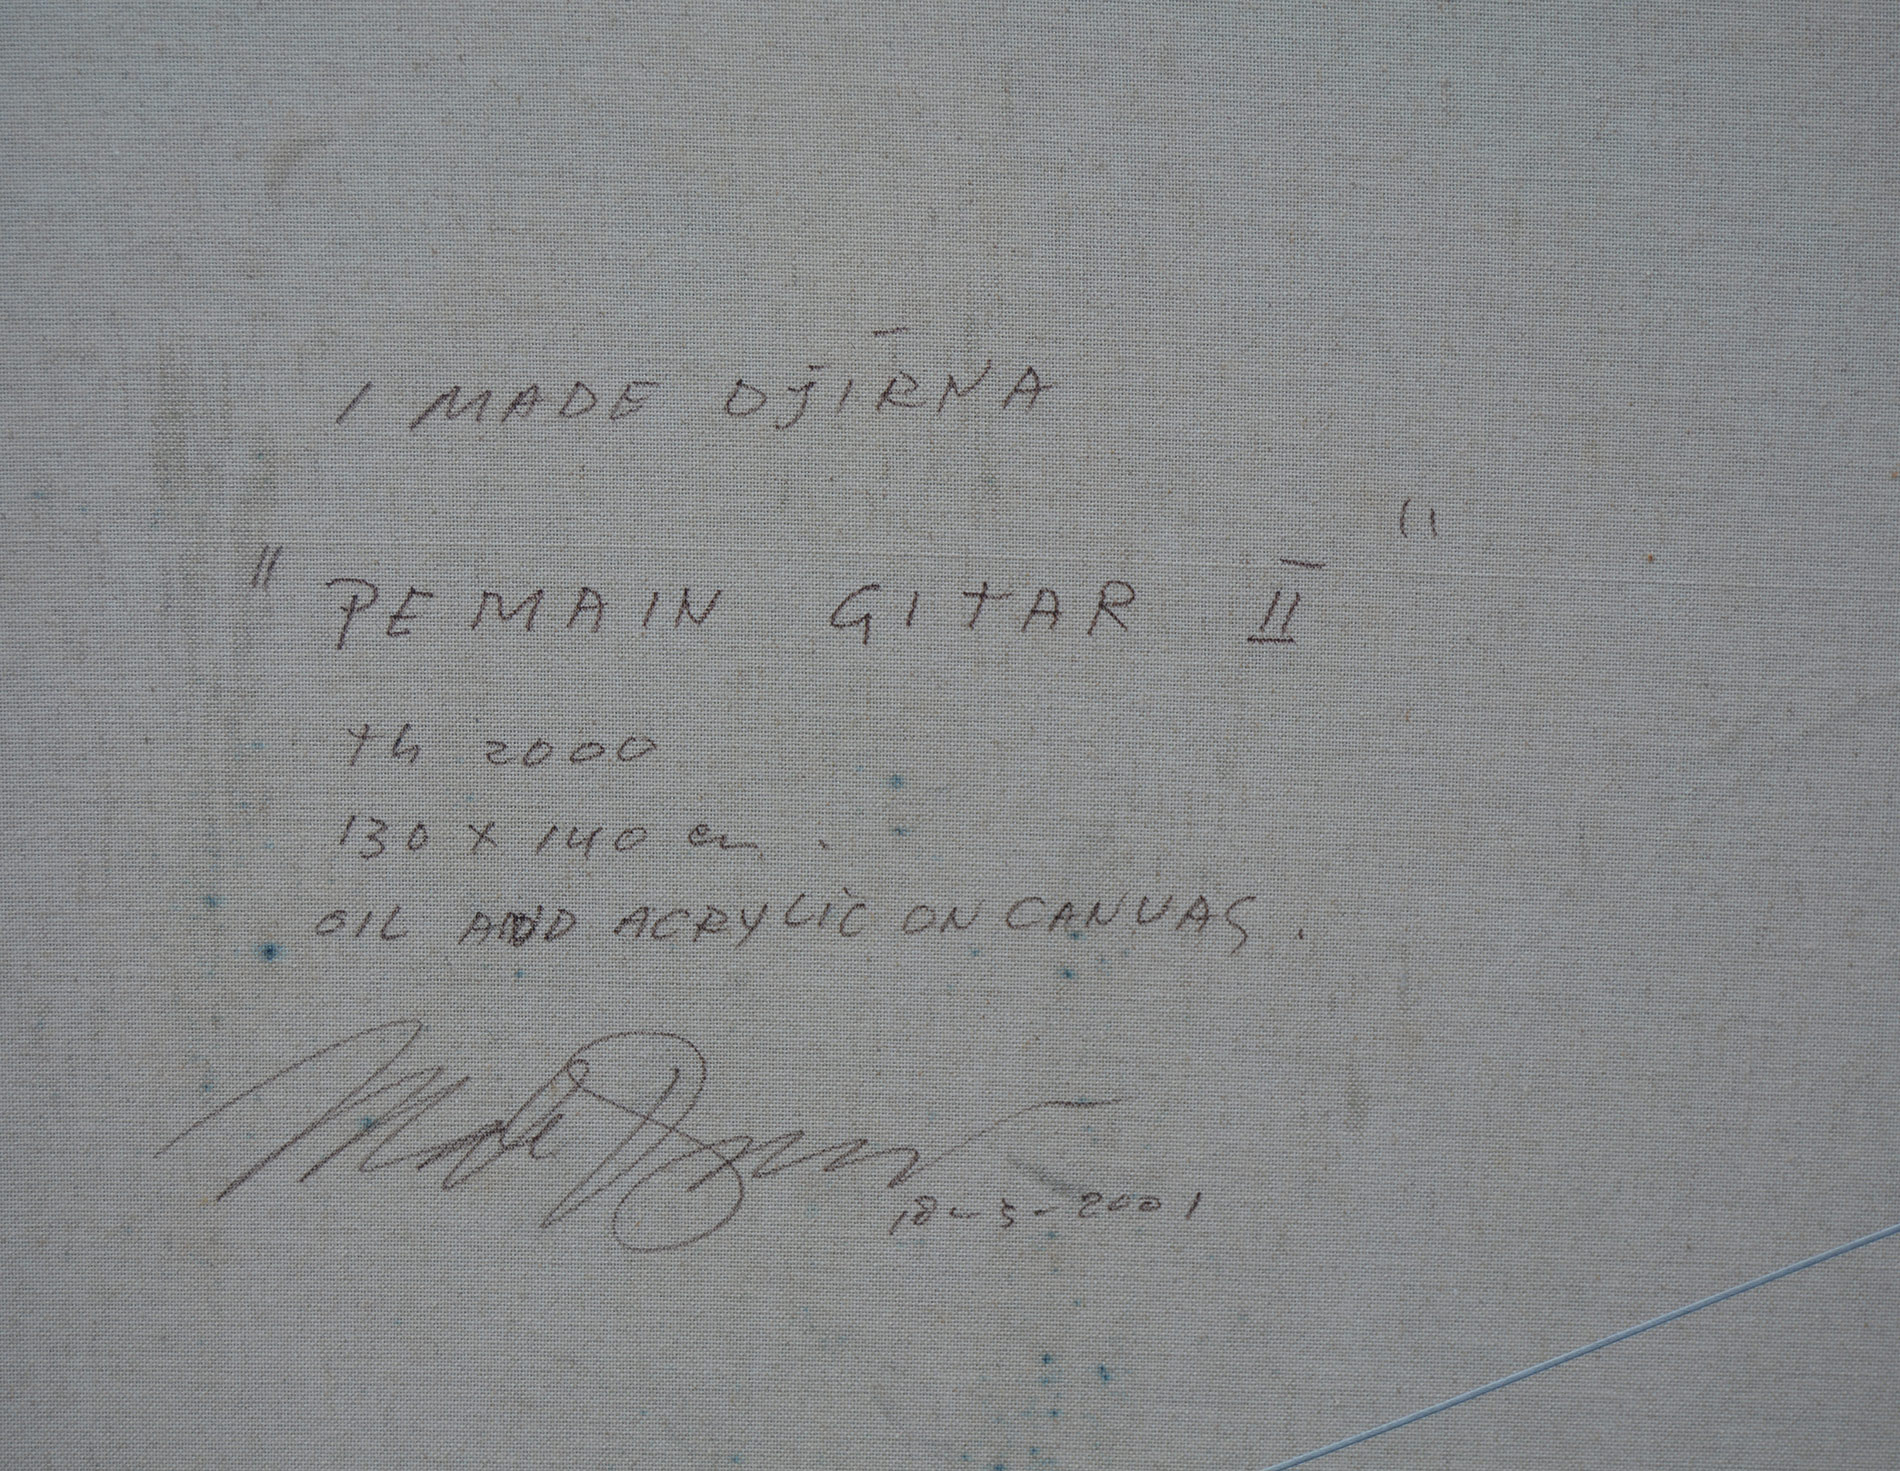 I MADE DJIRNA
"PEMAIN GITAR II"
th 2000
130 x 140 cm.
OIL AND ACRYLIC ON CANVAS.
Made Djirna
18-3-2001